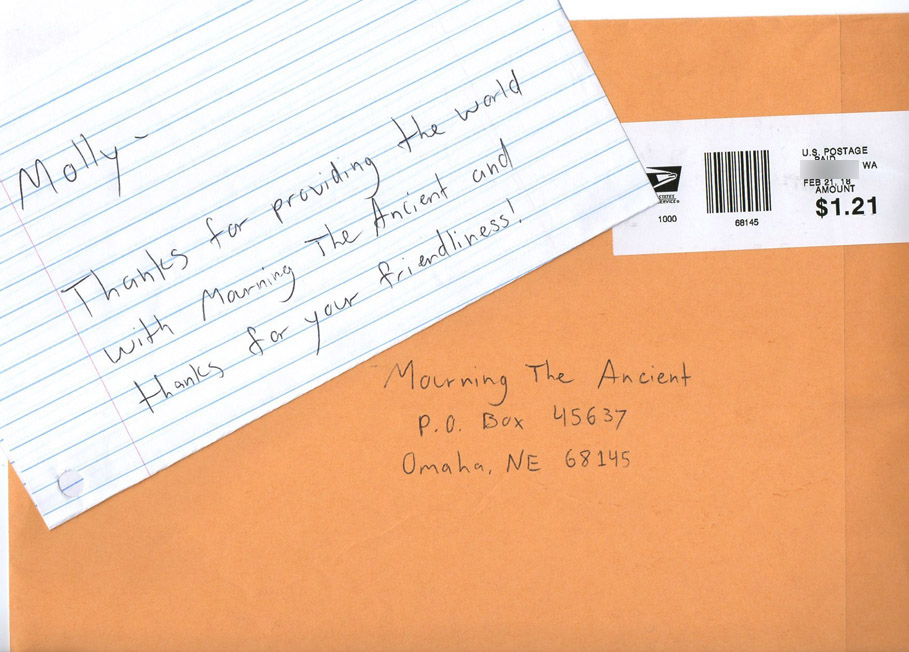 Molly-
Thanks for providing the world
with Mourning The Ancient and
thanks for your friendliness!
U.S. POSTAGE
PAID
WA
FEB 21, 18
AMOUNT
$1.21
1000
68145
Mourning The Ancient
P.O. Box 45637
Omaha, NE 68145